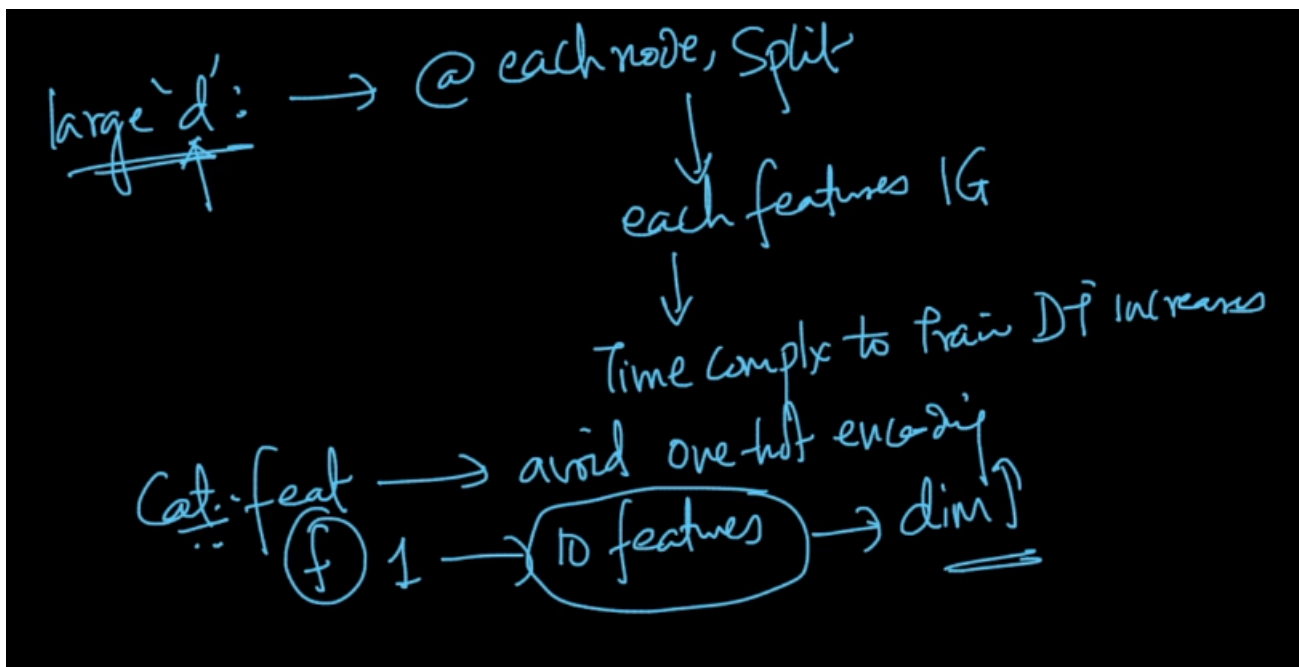 large 'd': → @ each node, Split
↓
each features IG
↓
Time complx to train DT increases
Cat. feat → avoid one-hot encoding
f 1 → 10 features → dim ↑